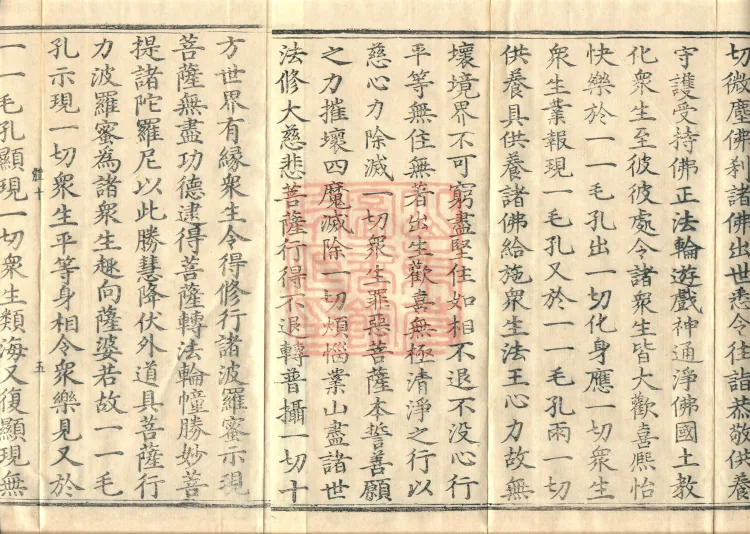 切微塵佛刹諸佛出世悉令往詣恭敬供養
守護受持佛正法輪遊戲神通淨佛國土教
化衆生至彼彼處令諸衆生皆大歡喜熈怡
快樂於一一毛孔出一切化身應一切衆生
衆生業報現一毛孔又於一一毛孔雨一切
供養具供養諸佛給施衆生法王心力故無
壞境界不可窮盡堅住如相不退不没心行
平等無住無著出生歡喜無極清淨之行以
慈心力除滅一切衆生罪惡菩薩本誓善願
之力摧壞四魔滅除一切煩惱業山盡諸世
法修大慈悲菩薩行得不退轉普攝一切十
方世界有緣衆生令得修行諸波羅蜜示現
菩薩無盡功德逮得菩薩轉法輪幢勝妙菩
提諸陀羅尼以此勝慧降伏外道具菩薩行
力波羅蜜為諸衆生趣向薩婆若故一一毛
孔示現一切衆生平等身相令衆樂見又於
體十 五
一一毛孔顯現一切衆生類海又復顯現無